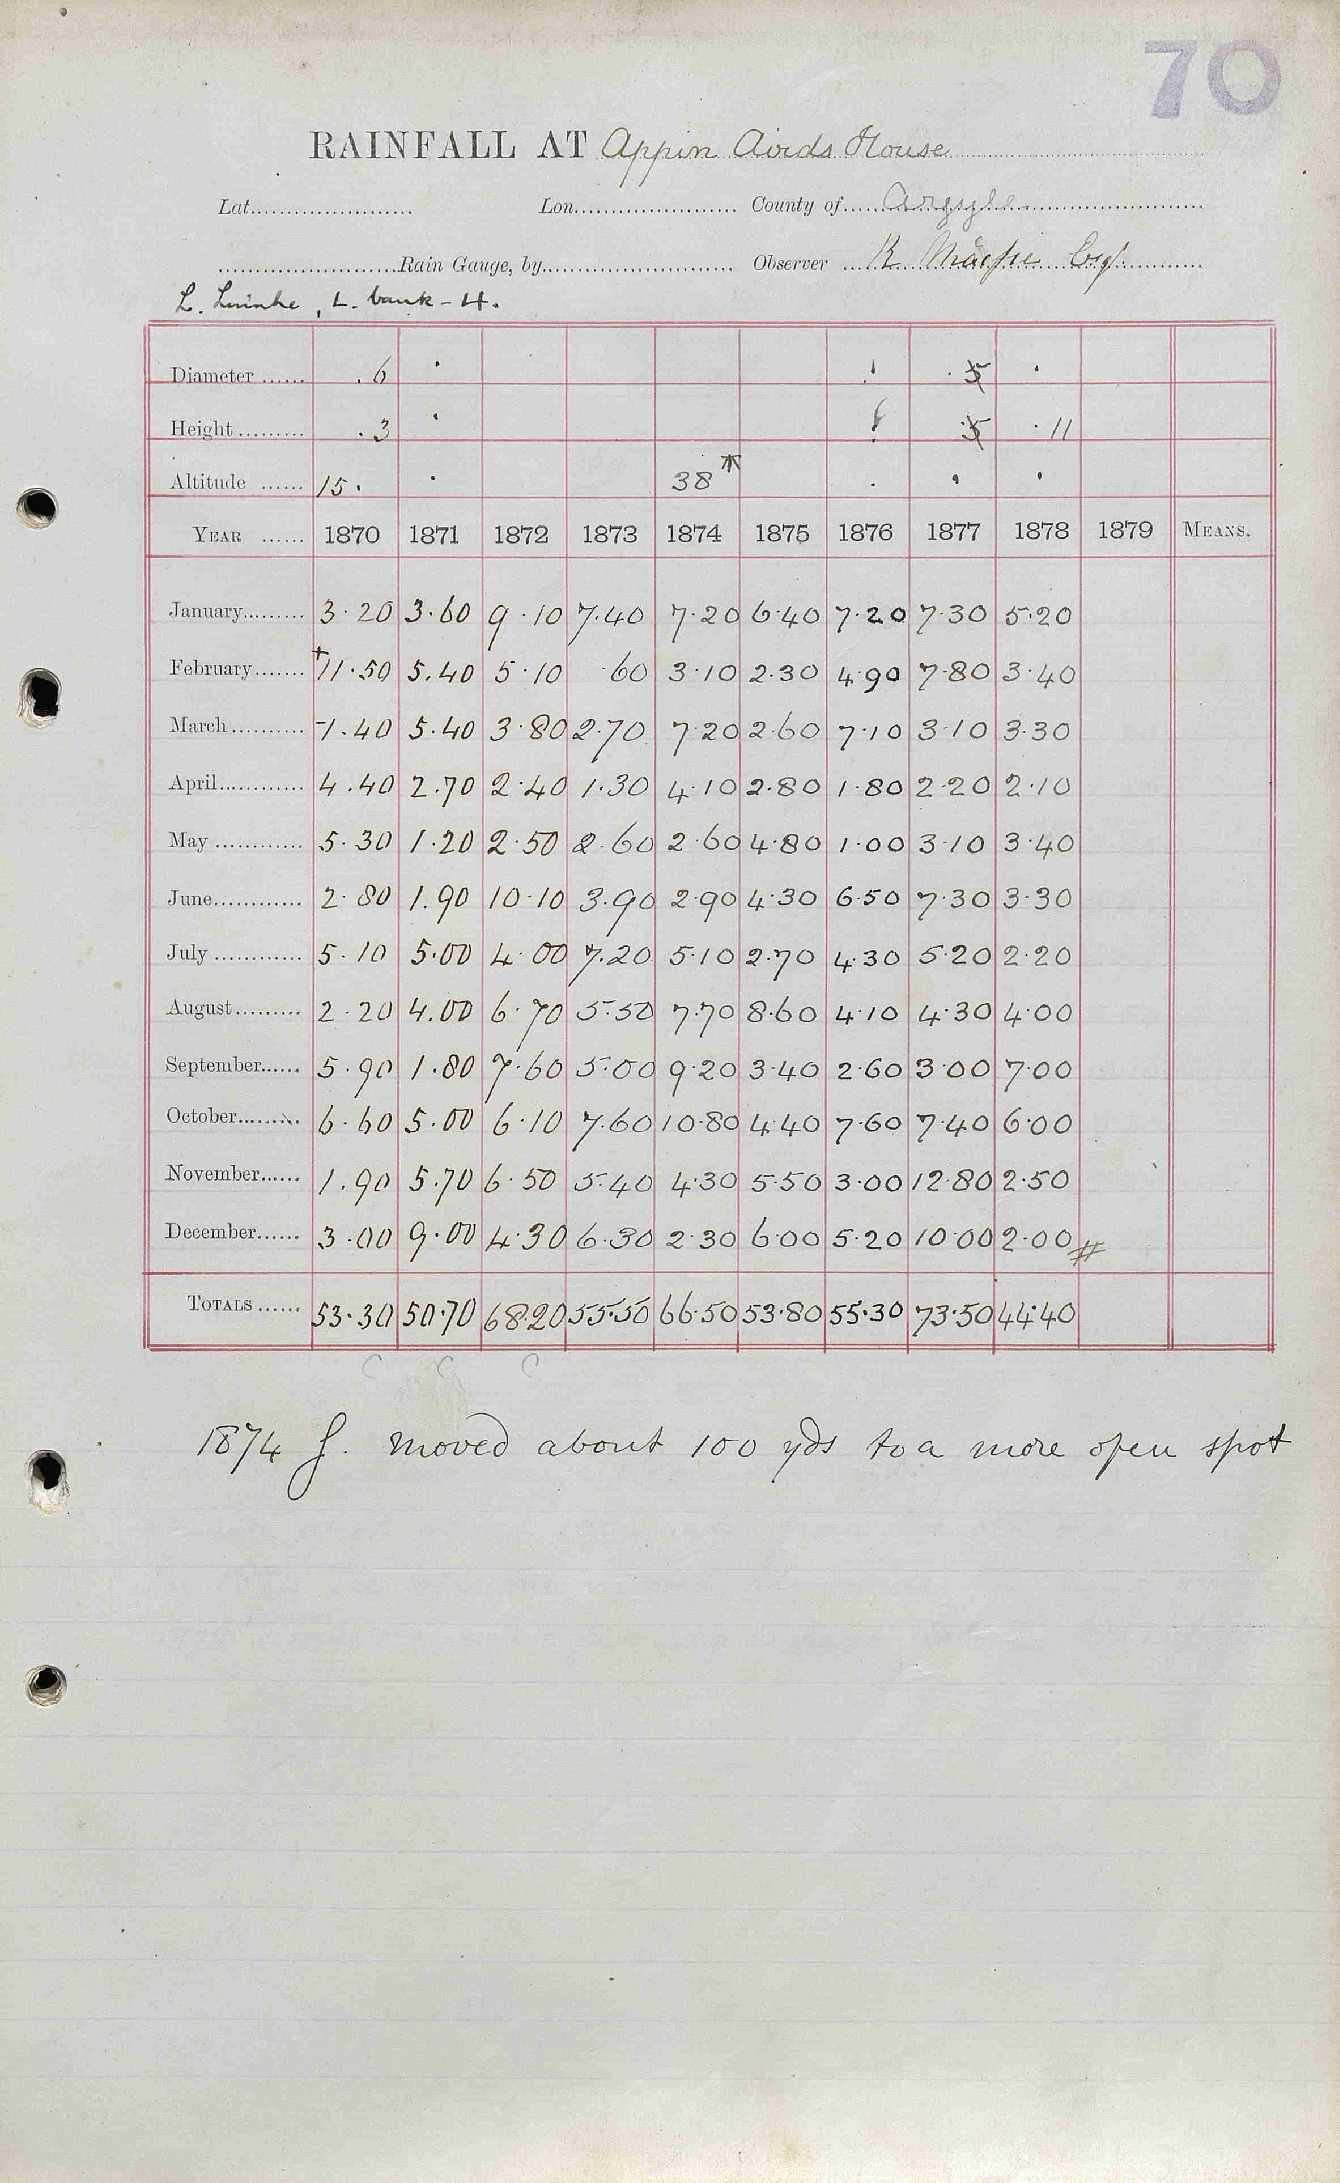 70
RAINFALL AT Appin Airds House
Lat. Lon. County of Argyll
Rain Gauge, by Observer R. Macfie Esq.
L. Linnhe, L. bank - 4.
Diameter .6 5
Height .3 5 11
Altitude 15. 38
YEAR 1870 1871 1872 1873 1874 1875 1876 1877 1878 1879 MEANS.
January 3.20 3.60 9.10 7.40 7.20 6.40 7.20 7.30 5.20
February +11.50 5.40 5.10 .60 3.10 2.30 4.90 7.80 3.40
March 1.40 5.40 3.80 2.70 7.20 2.60 7.10 3.10 3.30
April 4.40 2.70 2.40 1.30 4.10 2.80 1.80 2.20 2.10
May 5.30 1.20 2.50 2.60 2.60 4.80 1.00 3.10 3.40
June 2.80 1.90 10.10 3.90 2.90 4.30 6.50 7.30 3.30
July 5.10 5.00 4.00 7.20 5.10 2.70 4.30 5.20 2.20
August 2.20 4.00 6.70 5.50 7.70 8.60 4.10 4.30 4.00
September 5.90 1.80 7.60 5.00 9.20 3.40 2.60 3.00 7.00
October 6.60 5.00 6.10 7.60 10.80 4.40 7.60 7.40 6.00
November 1.90 5.70 6.50 5.40 4.30 5.50 3.00 12.80 2.50
December 3.00 9.00 4.30 6.30 2.30 6.00 5.20 10.00 2.00 #
TOTALS 53.30 50.70 68.20 55.50 66.50 53.80 55.30 73.50 44.40
C C C
1874 G. moved about 100 yds to a more open spot